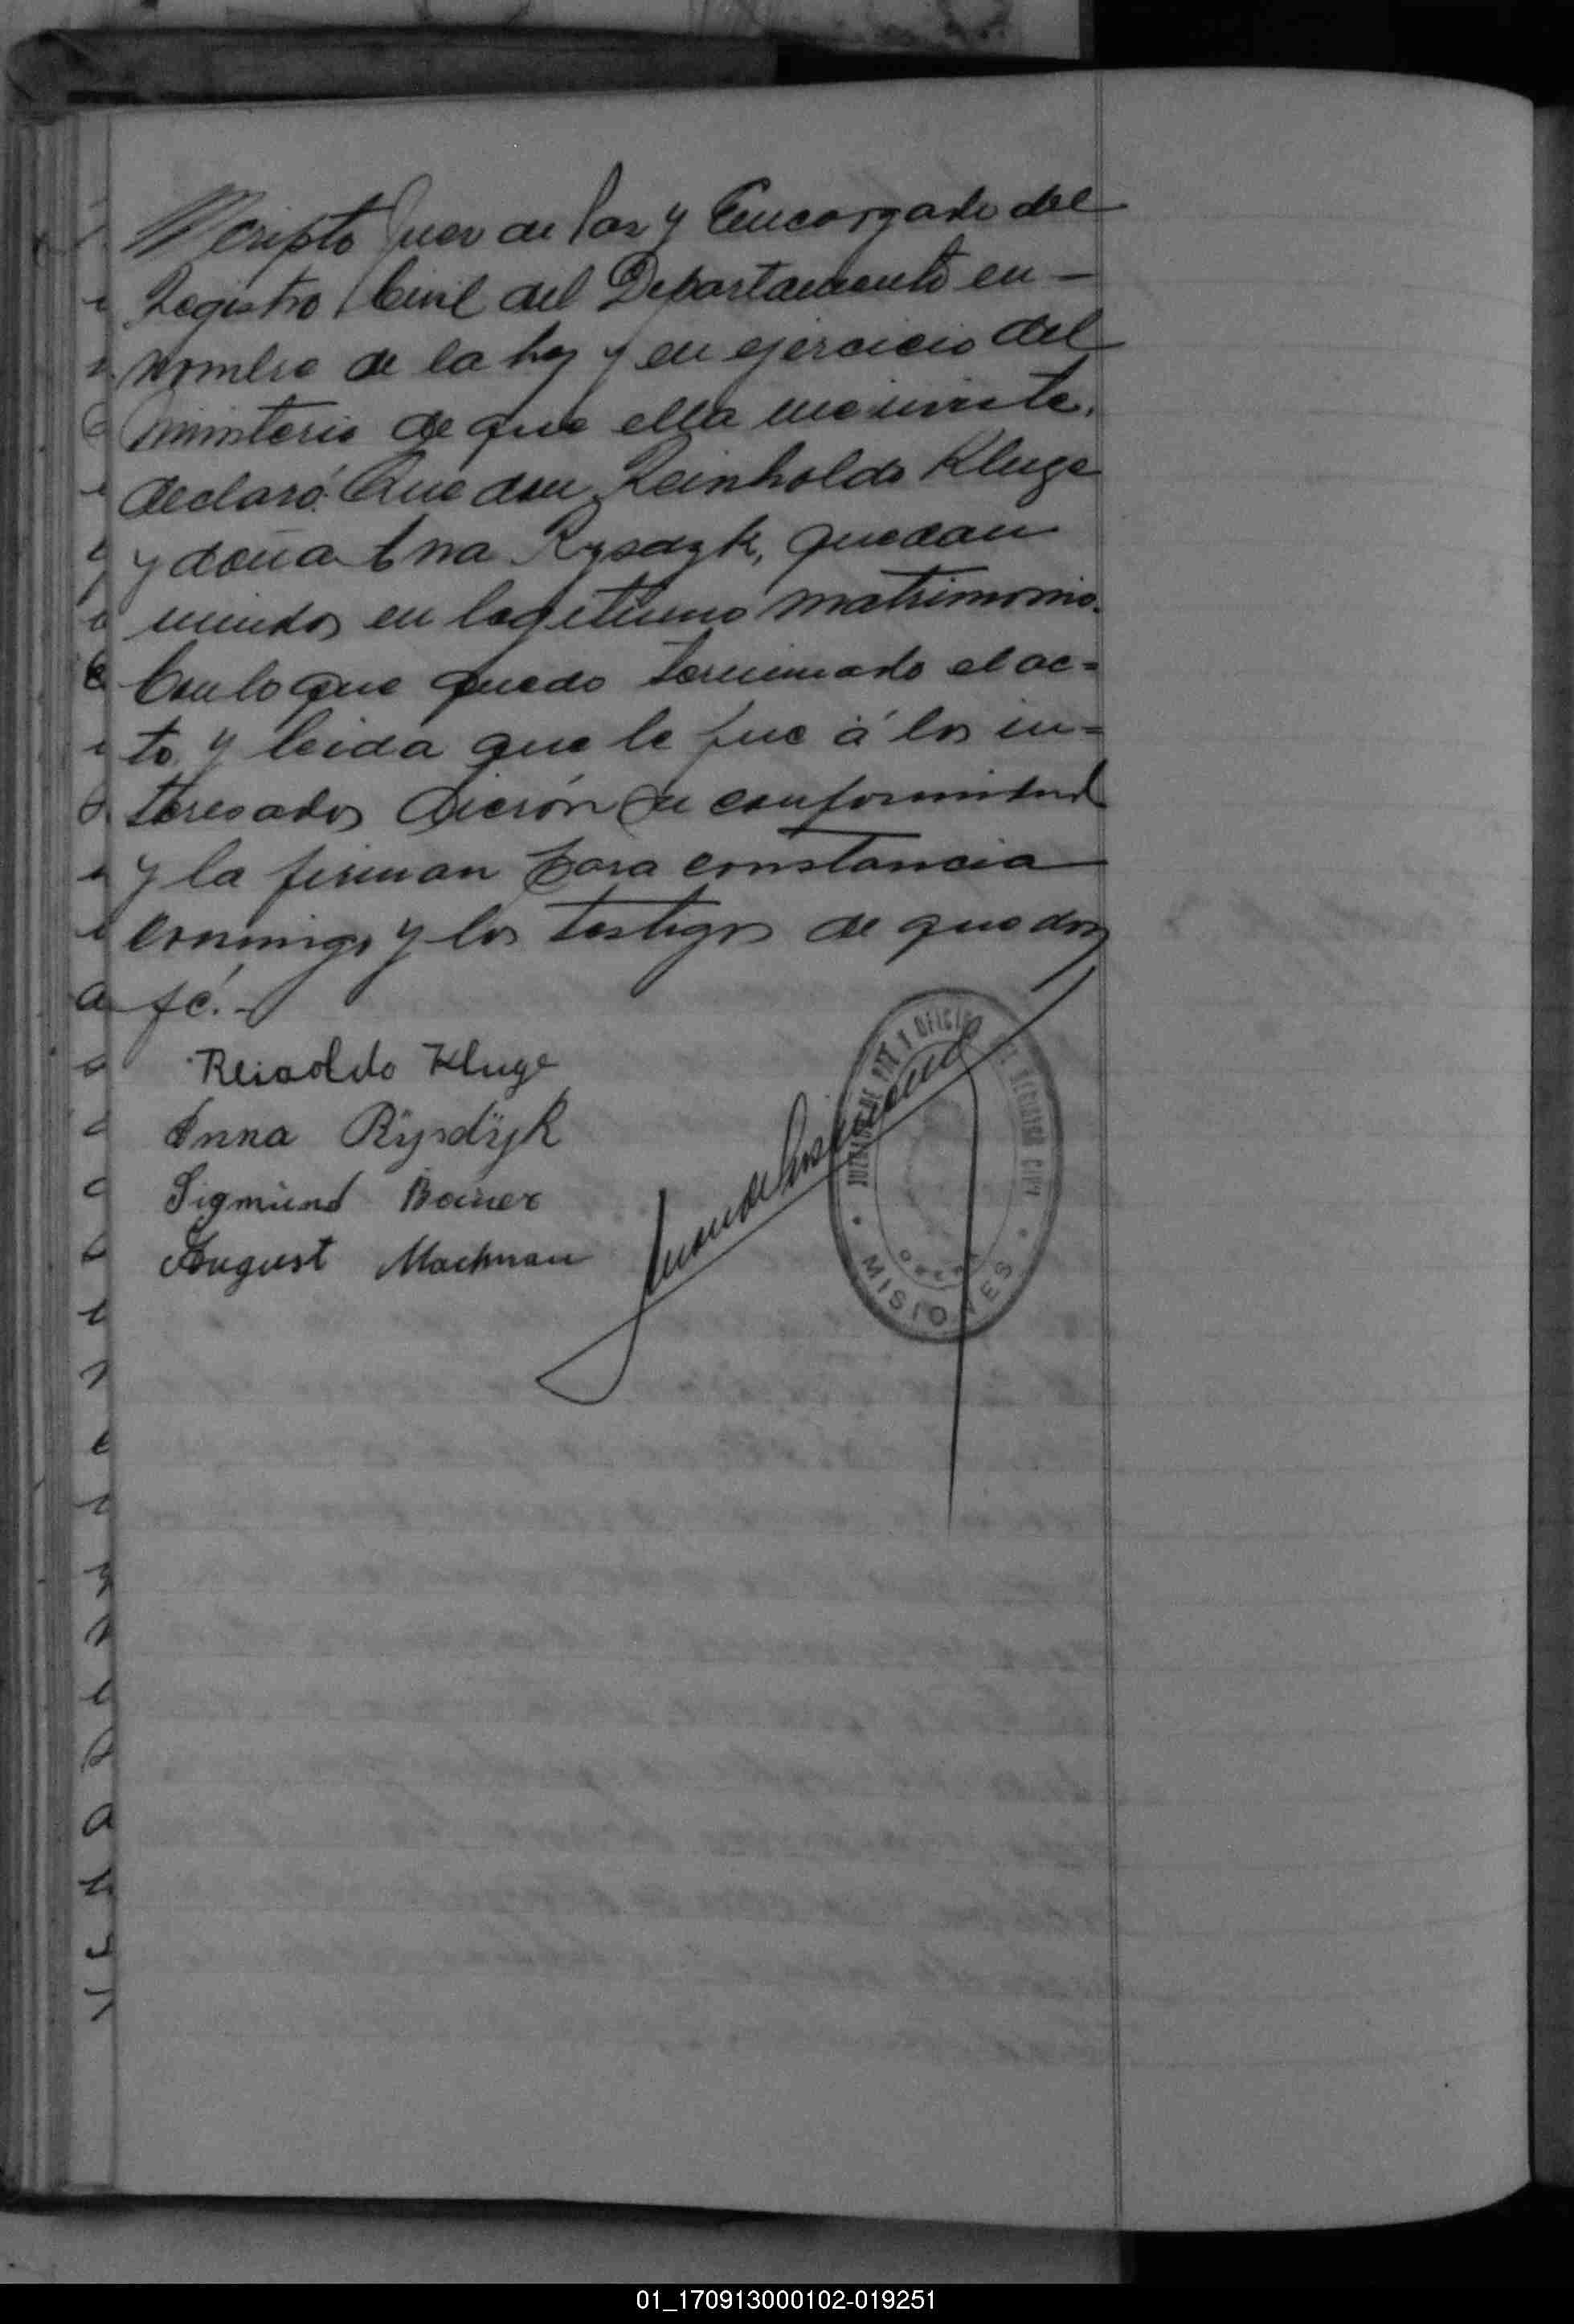 cripto Juez de Paz y Encargado del
Registro Civil del Departamento en —
nombre de la ley y en ejercicio del
ministerio de que ella me inviste,
declaró: Que don Reinholdo Kluge
y doña Ana Rysdyk, quedan
unidos en legitimo matrimonio.
Con lo que quedo terminado el ac=
to y leida que le fue á los in=
teresados dierón su conformidad
y la firman para constancia
conmigo y los testigos de que doy
fé.-
Reinoldo Kluge
Anna Rÿsdÿk
Sigmund
August
Juan de
JUZGADO DE PAZ Y OFICINA DEL REGISTRO CIVIL
MISIONES
01_170913000102-019251